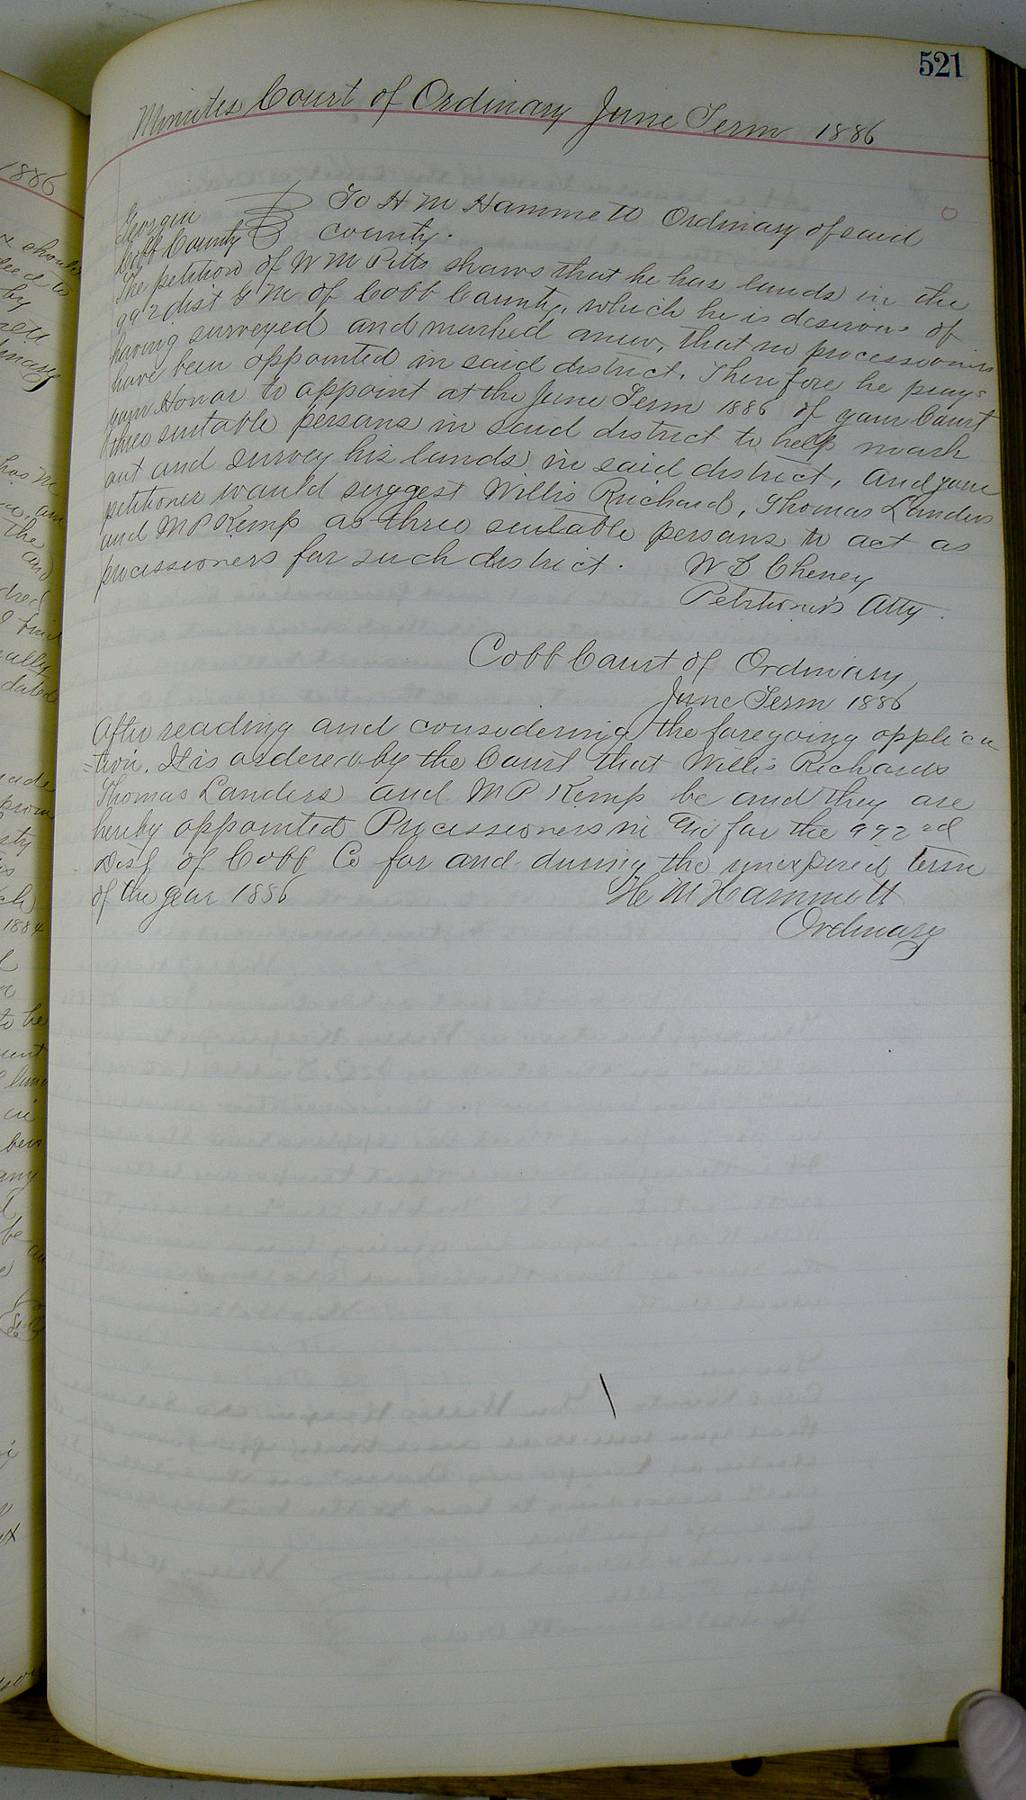 521
Minutes Court of Ordinary June Term 1886
Georgia To H M Hammett Ordinary of said
Cobb County county.
The petition of W M Pitts shows that he has lands in the
992 dist G M of Cobb County, which he is desirous of
having surveyed and marked anew, that no processioners
have been appointed in said district. Therefore he prays
your Honor to appoint at the June Term 1886 of your Court
three suitable persons in said district to help mark
out and survey his lands in said district, and your
petitioner would suggest Willis Richard, Thomas Landers
and M P Kemp as three suitable persons to act as
processioners for such district.
W D Cheney
Petitioner's Atty.
Cobb Court of Ordinary
June Term 1886
After reading and considering the foregoing applica
-tion. It is ordered by the Court that Willis Richards
Thomas Landers and M P Kemp be and they are
hereby appointed Processioners in for the 992nd
Dist of Cobb Co for and during the unexpired term
of the year 1886
H M Hammett
Ordinary